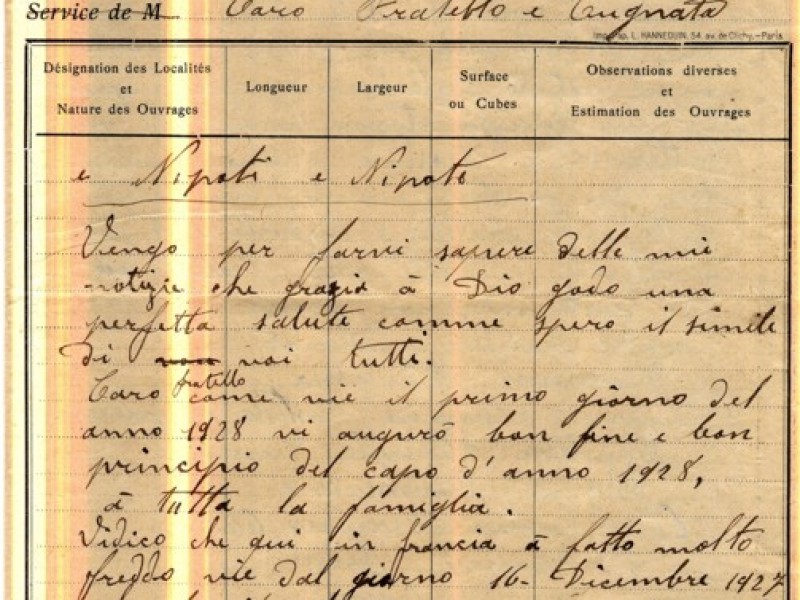 Service de M Caro Fratello e Cugnata
Imp.-Pap. L. HANNEQUIN, 54, av. de Clichy.—Paris
Désignation des Localités
et
Nature des Ouvrages
Longueur
Largeur
Surface
ou Cubes
Observations diverses
et
Estimation des Ouvrages
e Nipoti e Nipote
Vengo per farvi sapere delle mie
notizie che grazia à Dio godo una
perfetta salute comme spero il simile
di voi tutti.
fratello
Caro come vie il primo giorno del
anno 1928 vi augurò bon fine e bon
principio del capo d'anno 1928,
à tutta la famiglia.
Vidico che qui in francia à fatto molto
freddo vie dal giorno 16- Dicembre 1927